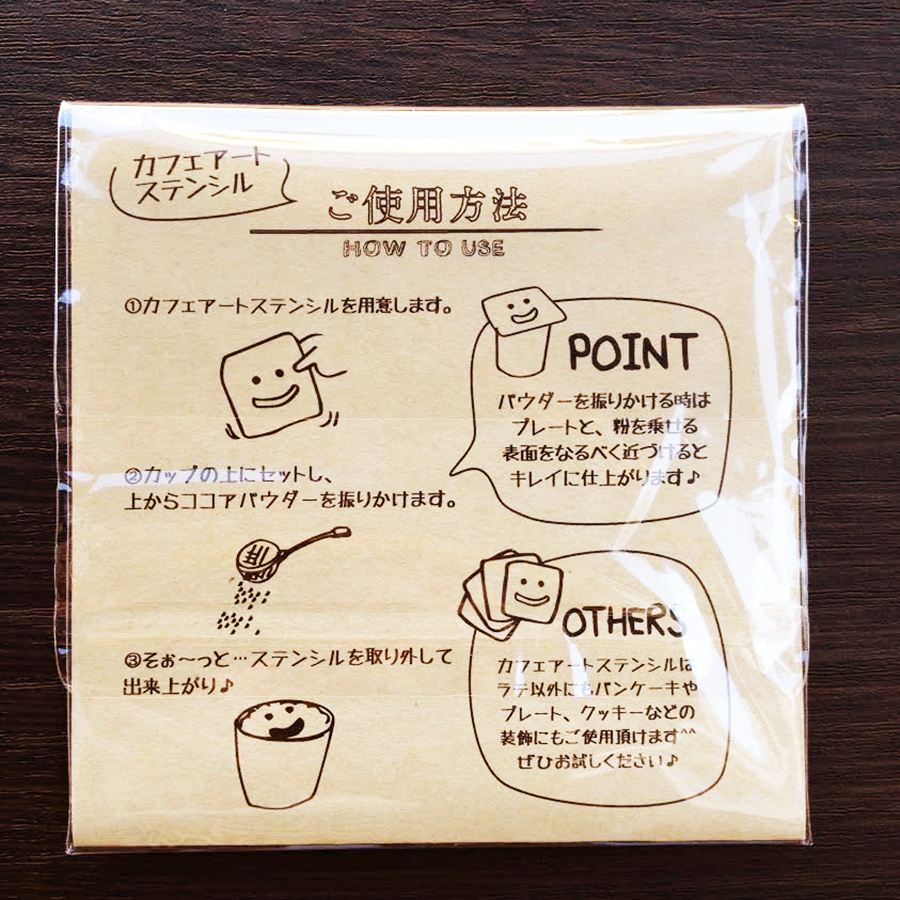 カフェアート
ステンシル
ご使用方法
HOW TO USE
①カフェアートステンシルを用意します。
②カップの上にセットし、
上からココアパウダーを振りかけます。
③そぉ〜っと…ステンシルを取り外して
出来上がり♪
POINT
パウダーを振りかける時は
プレートと、粉を乗せる
表面をなるべく近づけると
キレイに仕上がります♪
OTHERS
カフェアートステンシルは
ラテ以外にもパンケーキや
プレート、クッキーなどの
装飾にもご使用頂けます^^
ぜひお試しください♪